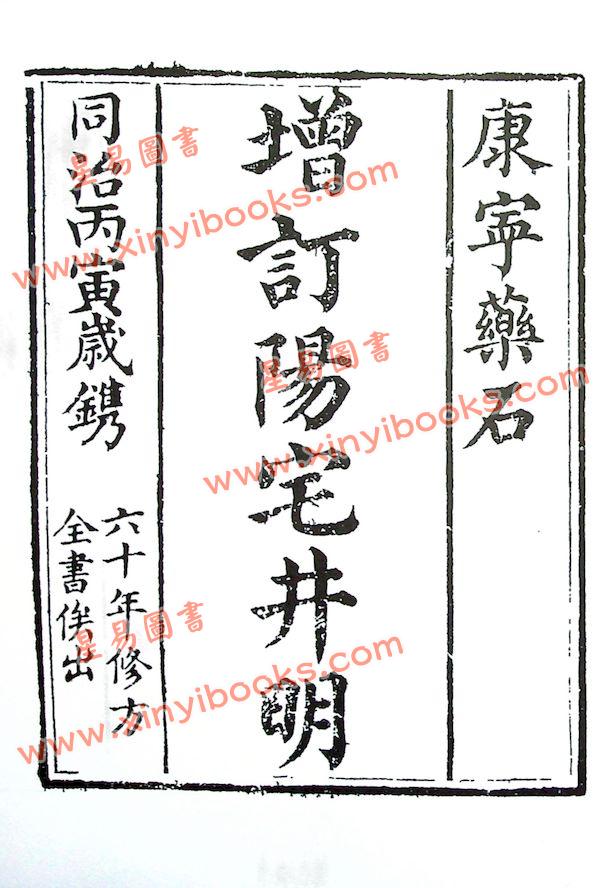 康寧藥石
增訂陽宅井明
同治丙寅歲鐫
六十年修方
全書俟出
星易圖書
www.xinyibooks.com
星易圖書
www.xinyibooks.com
星易圖書
www.xinyibooks.com